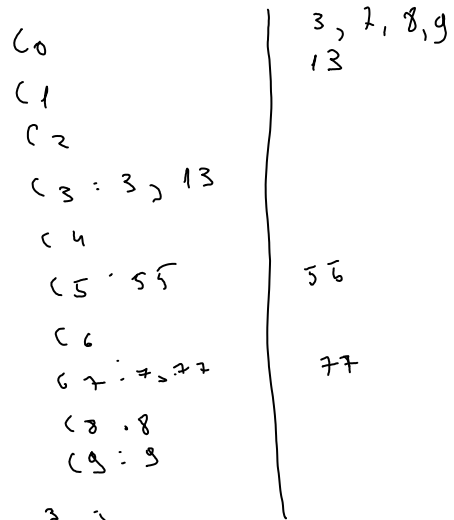 C0
C1
C2
C3 : 3, 13
C4
C5 : 55
C6
C7 : 7, 77
C8 : 8
C9 : 9
3, 7, 8, 9
13
55
77